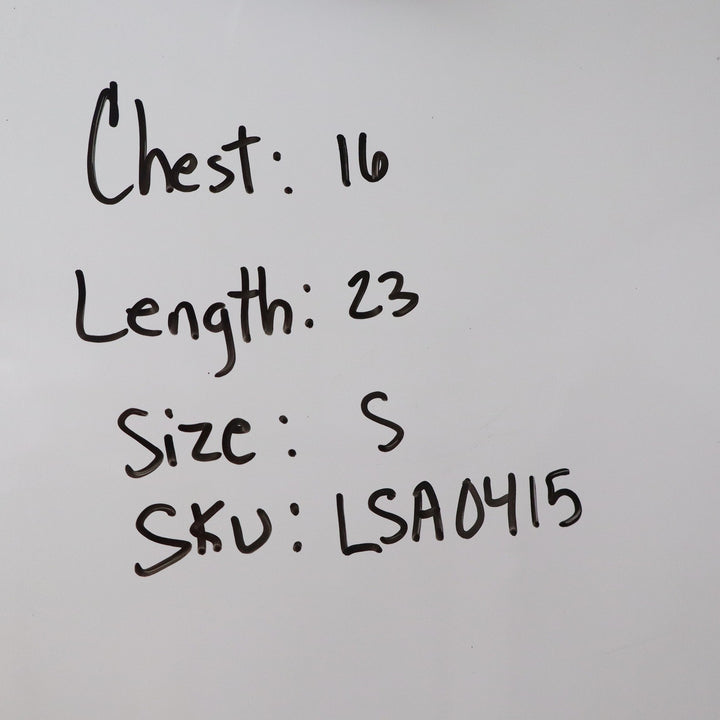 Chest: 16
Length: 23
Size: S
SKU: LSA0415